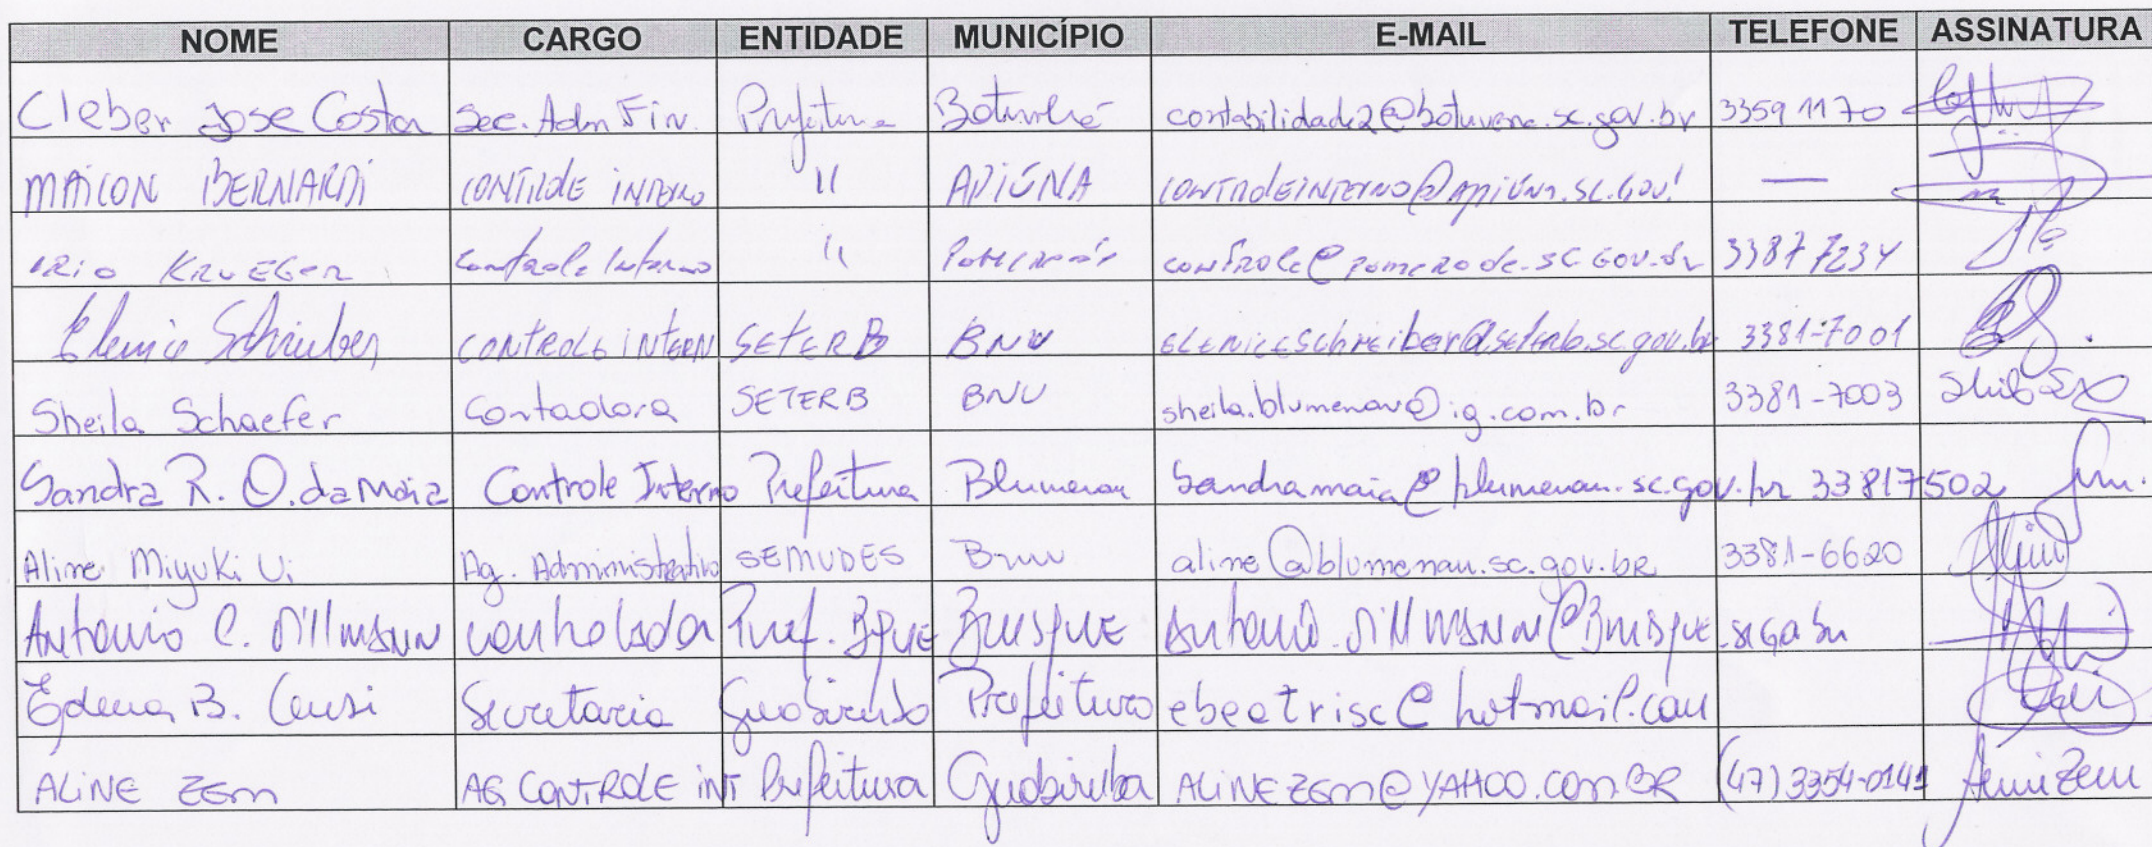 NOME CARGO ENTIDADE MUNICÍPIO E-MAIL TELEFONE ASSINATURA
Cleber Jose Costa Sec. Adm Fin. Prefeitura Botuverá contabilidade2@botuvera.sc.gov.br 33591170
MAICON BERNARDI CONTROLE INTERNO " APIÚNA CONTROLEINTERNO@APIÚNA.SC.GOV!
IRIO KRUEGER Controle Interno " POMERODE CONTROLE@POMERODE.SC GOV.br 33877234
Elenice Schreiber CONTROLE INTERN SETERB BNU ELENICESchreiber@seterb.sc.gov.br 3381-7001
Sheila Schaefer Contadora SETERB BNU sheila.blumenau@ig.com.br 3381-7003
Sandra R. O. da Maia Controle Interno Prefeitura Blumenau Sandramaia@blumenau.sc.gov.br 33817502
Aline Miyuki Ui Ag. Administrativo SEMUDES Bnu aline@blumenau.sc.gov.br 3381-6620
Antonio C. Dillmann Controlador Pref. BQUE BRUSQUE Antonio.Dillmann@Brusque.sc
Edena B. Censi Secretaria Guabiruba Prefeitura ebeatrisc@hotmail.com
ALINE ZEM AG CONTROLE INT Prefeitura Guabiruba ALINEZEM@YAHOO.COM.BR (47)3354-0141 Aline Zem